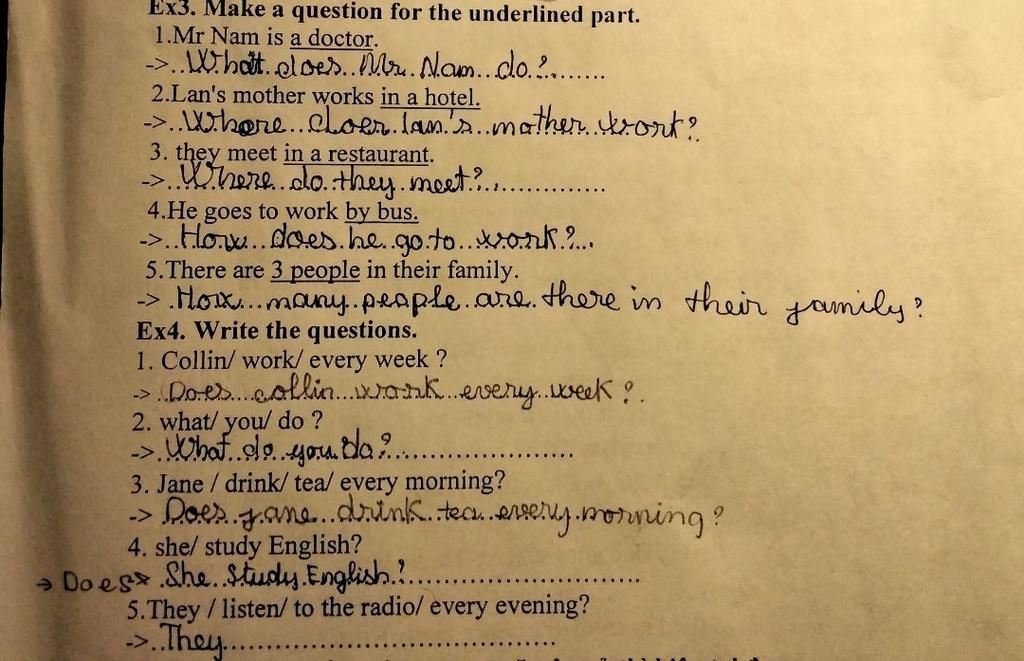 Ex3. Make a question for the underlined part.
1.Mr Nam is a doctor.
->..What..does..Mr..Nam..do.?.......
2.Lan's mother works in a hotel.
->..Where..does.lan's..mother..work?
3. they meet in a restaurant.
->..Where..do..they.meet?...............
4.He goes to work by bus.
->..How...does.he..go.to...work.?...
5.There are 3 people in their family.
->.How...many.people.are.there in their family?
Ex4. Write the questions.
1. Collin/ work/ every week ?
->..Does...collin...work..every..week?.
2. what/ you/ do ?
->.What..do..you.do?.......................
3. Jane / drink/ tea/ every morning?
->.Does..jane...drink..tea..every.morning?
4. she/ study English?
→ Does->.She..Study.English.?.............................
5.They / listen/ to the radio/ every evening?
->..They.........................................